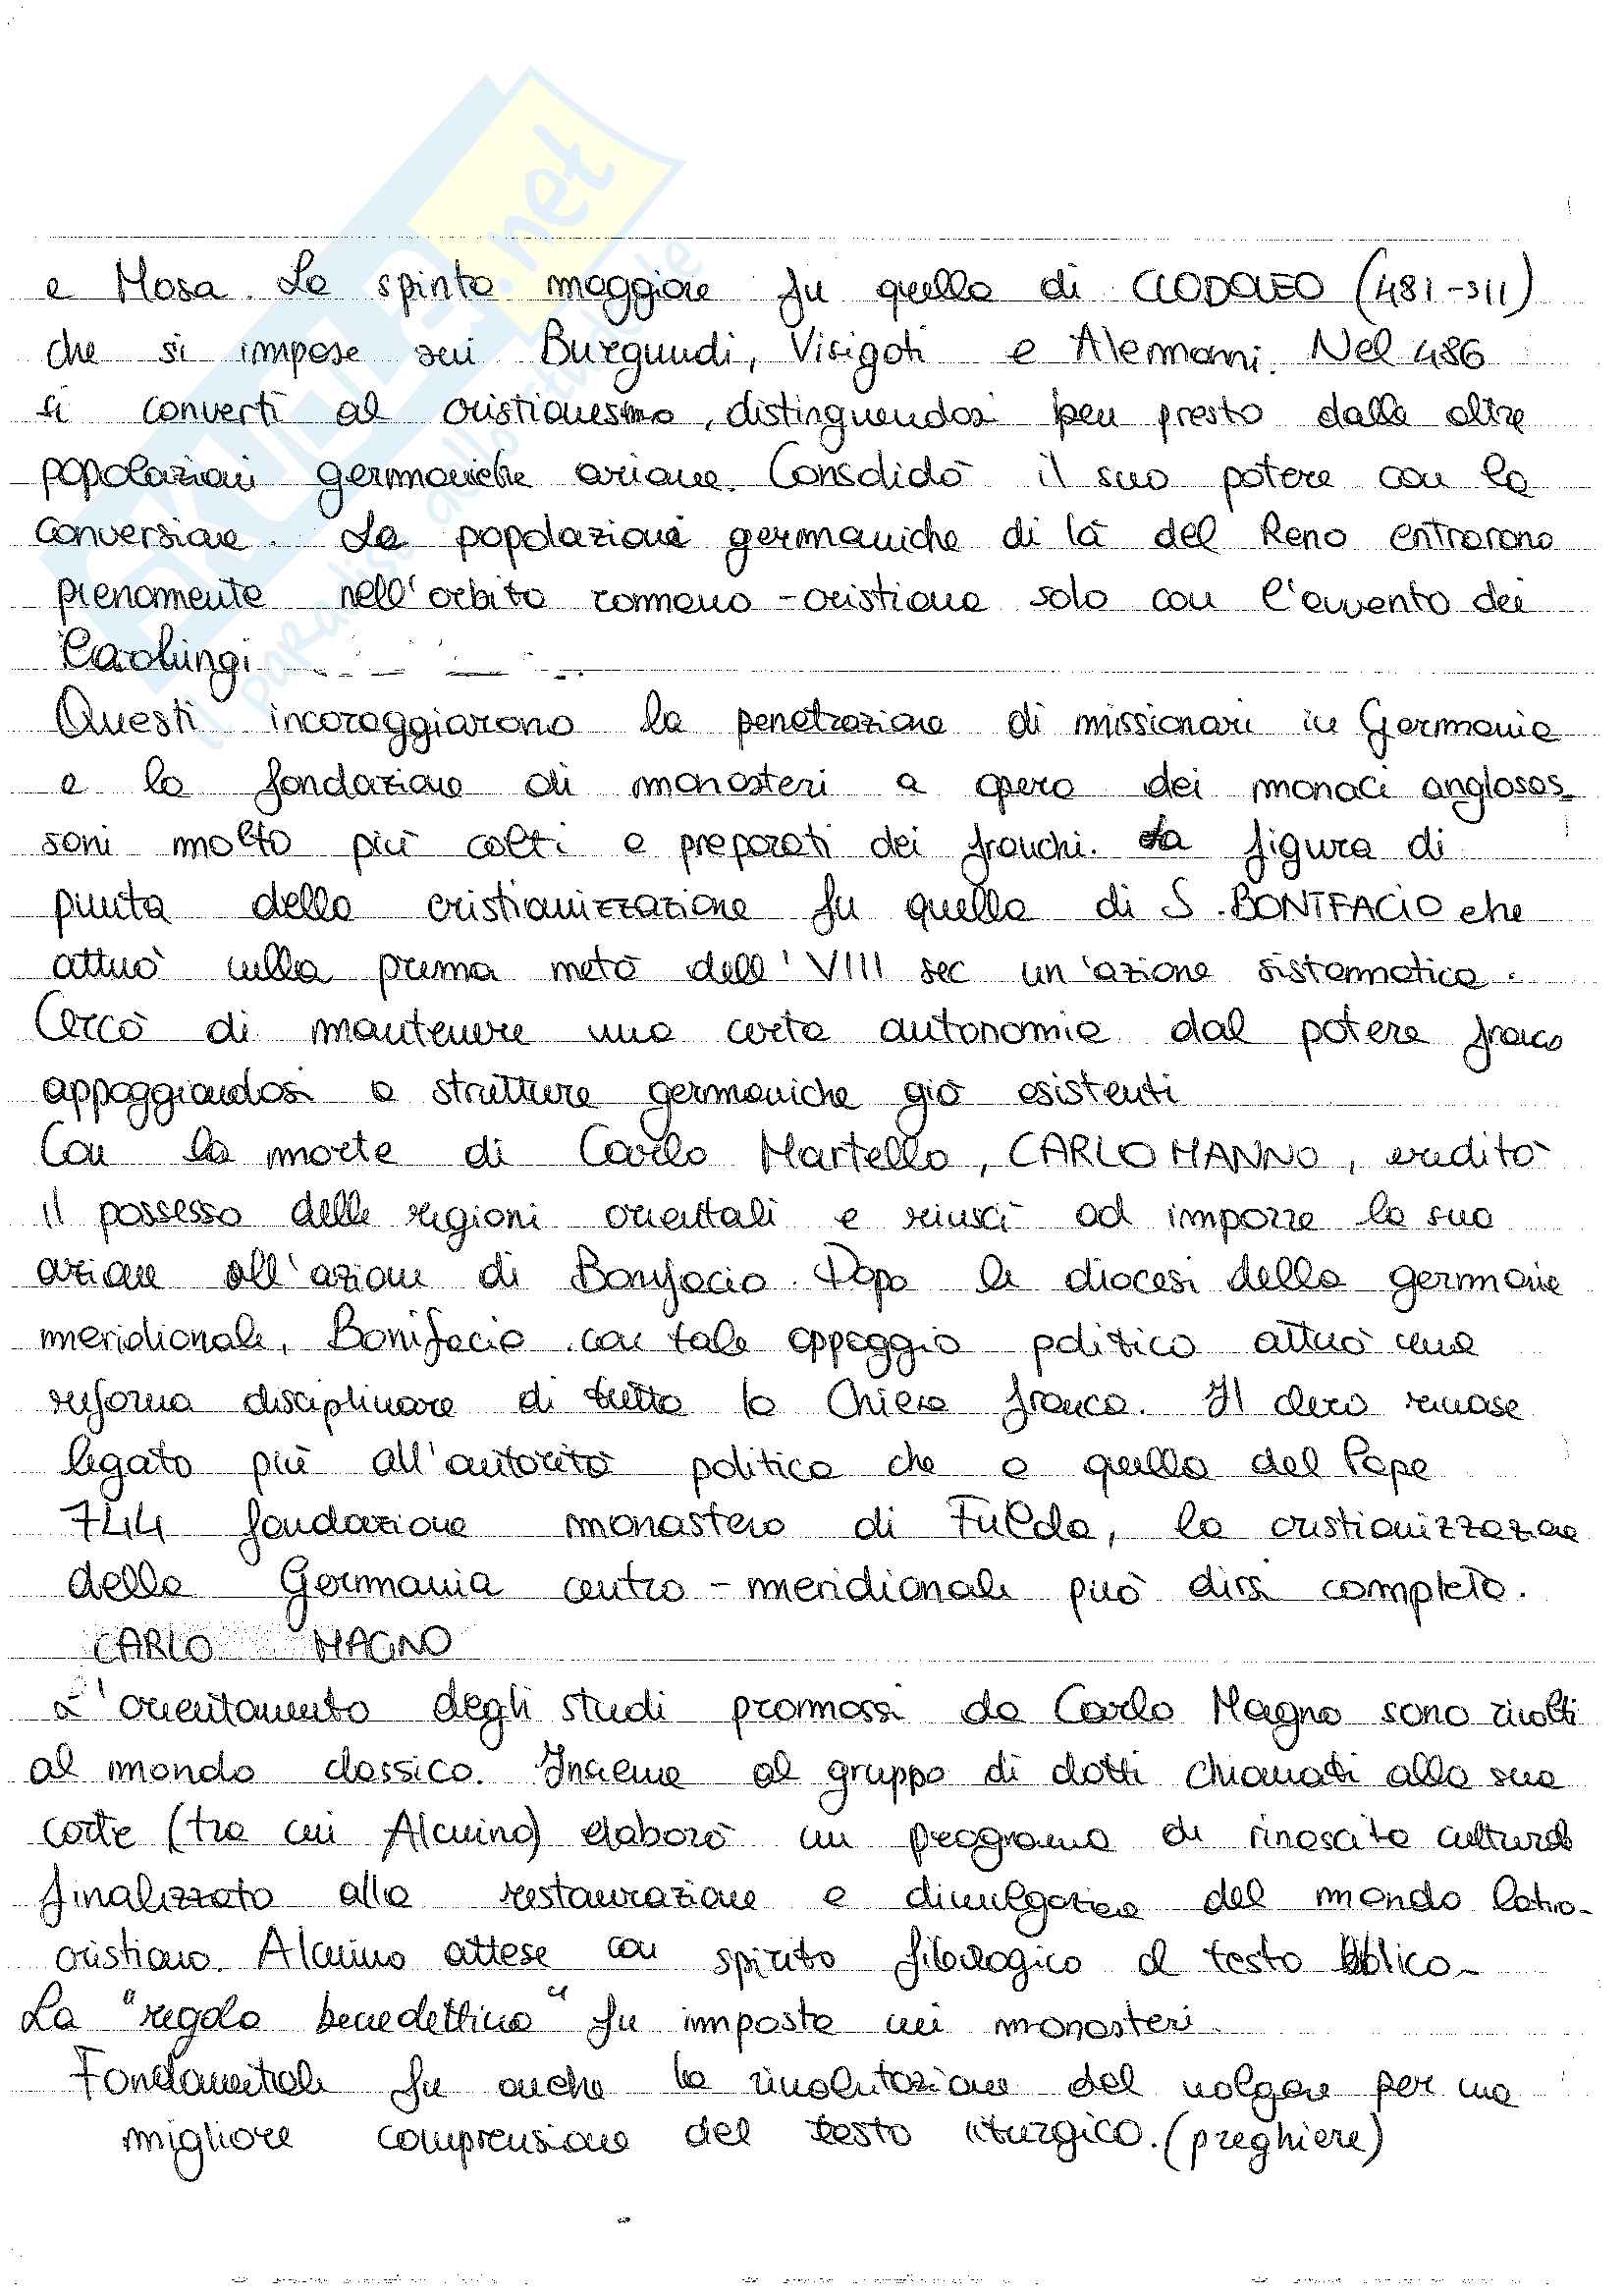 e Mosa. La spinta maggiore fu quella di CLODOVEO (481-511)
che si impose sui Burgundi, Visigoti e Alemanni. Nel 486
si convertì al cristianesimo, distinguendosi ben presto dalle altre
popolazioni germaniche ariane. Consolidò il suo potere con la
conversione. Le popolazioni germaniche di là del Reno entrarono
pienamente nell'orbita romano-cristiana solo con l'avvento dei
Carolingi
Questi incoraggiarono la penetrazione di missionari in Germania
e la fondazione di monasteri a opera dei monaci anglosas-
soni molto più colti e preparati dei franchi. La figura di
punta della cristianizzazione fu quella di S. BONIFACIO che
attuò nella prima metà dell'VIII sec un'azione sistematica.
Cercò di mantenere una certa autonomia dal potere franco
appoggiandosi a strutture germaniche già esistenti
Con la morte di Carlo Martello, CARLO MANNO, ereditò
il possesso delle regioni orientali e riuscì ad imporre la sua
azione all'azione di Bonifacio. Dopo le diocesi della germania
meridionale, Bonifacio con tale appoggio politico attuò una
riforma disciplinare di tutta la Chiesa franca. Il clero rimase
legato più all'autorità politica che a quella del Papa
744 fondazione monastero di Fulda, la cristianizzazione
della Germania centro-meridionale può dirsi completa.
CARLO MAGNO
L'orientamento degli studi promossi da Carlo Magno sono rivolti
al mondo classico. Insieme al gruppo di dotti chiamati alla sua
corte (tra cui Alcuino) elaborò un programma di rinascita culturale
finalizzato alla restaurazione e divulgazione del mondo latino-
cristiano. Alcuino attese con spirito filologico al testo biblico.
La "regola benedettina" fu imposta nei monasteri.
Fondamentale fu anche la rivalutazione del volgare per una
migliore comprensione del testo liturgico. (preghiere)
.net
il paradiso dello studente